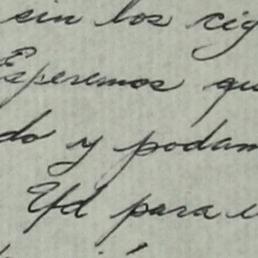 sin los cig
Esperemos qu
do y podam
Yd para u